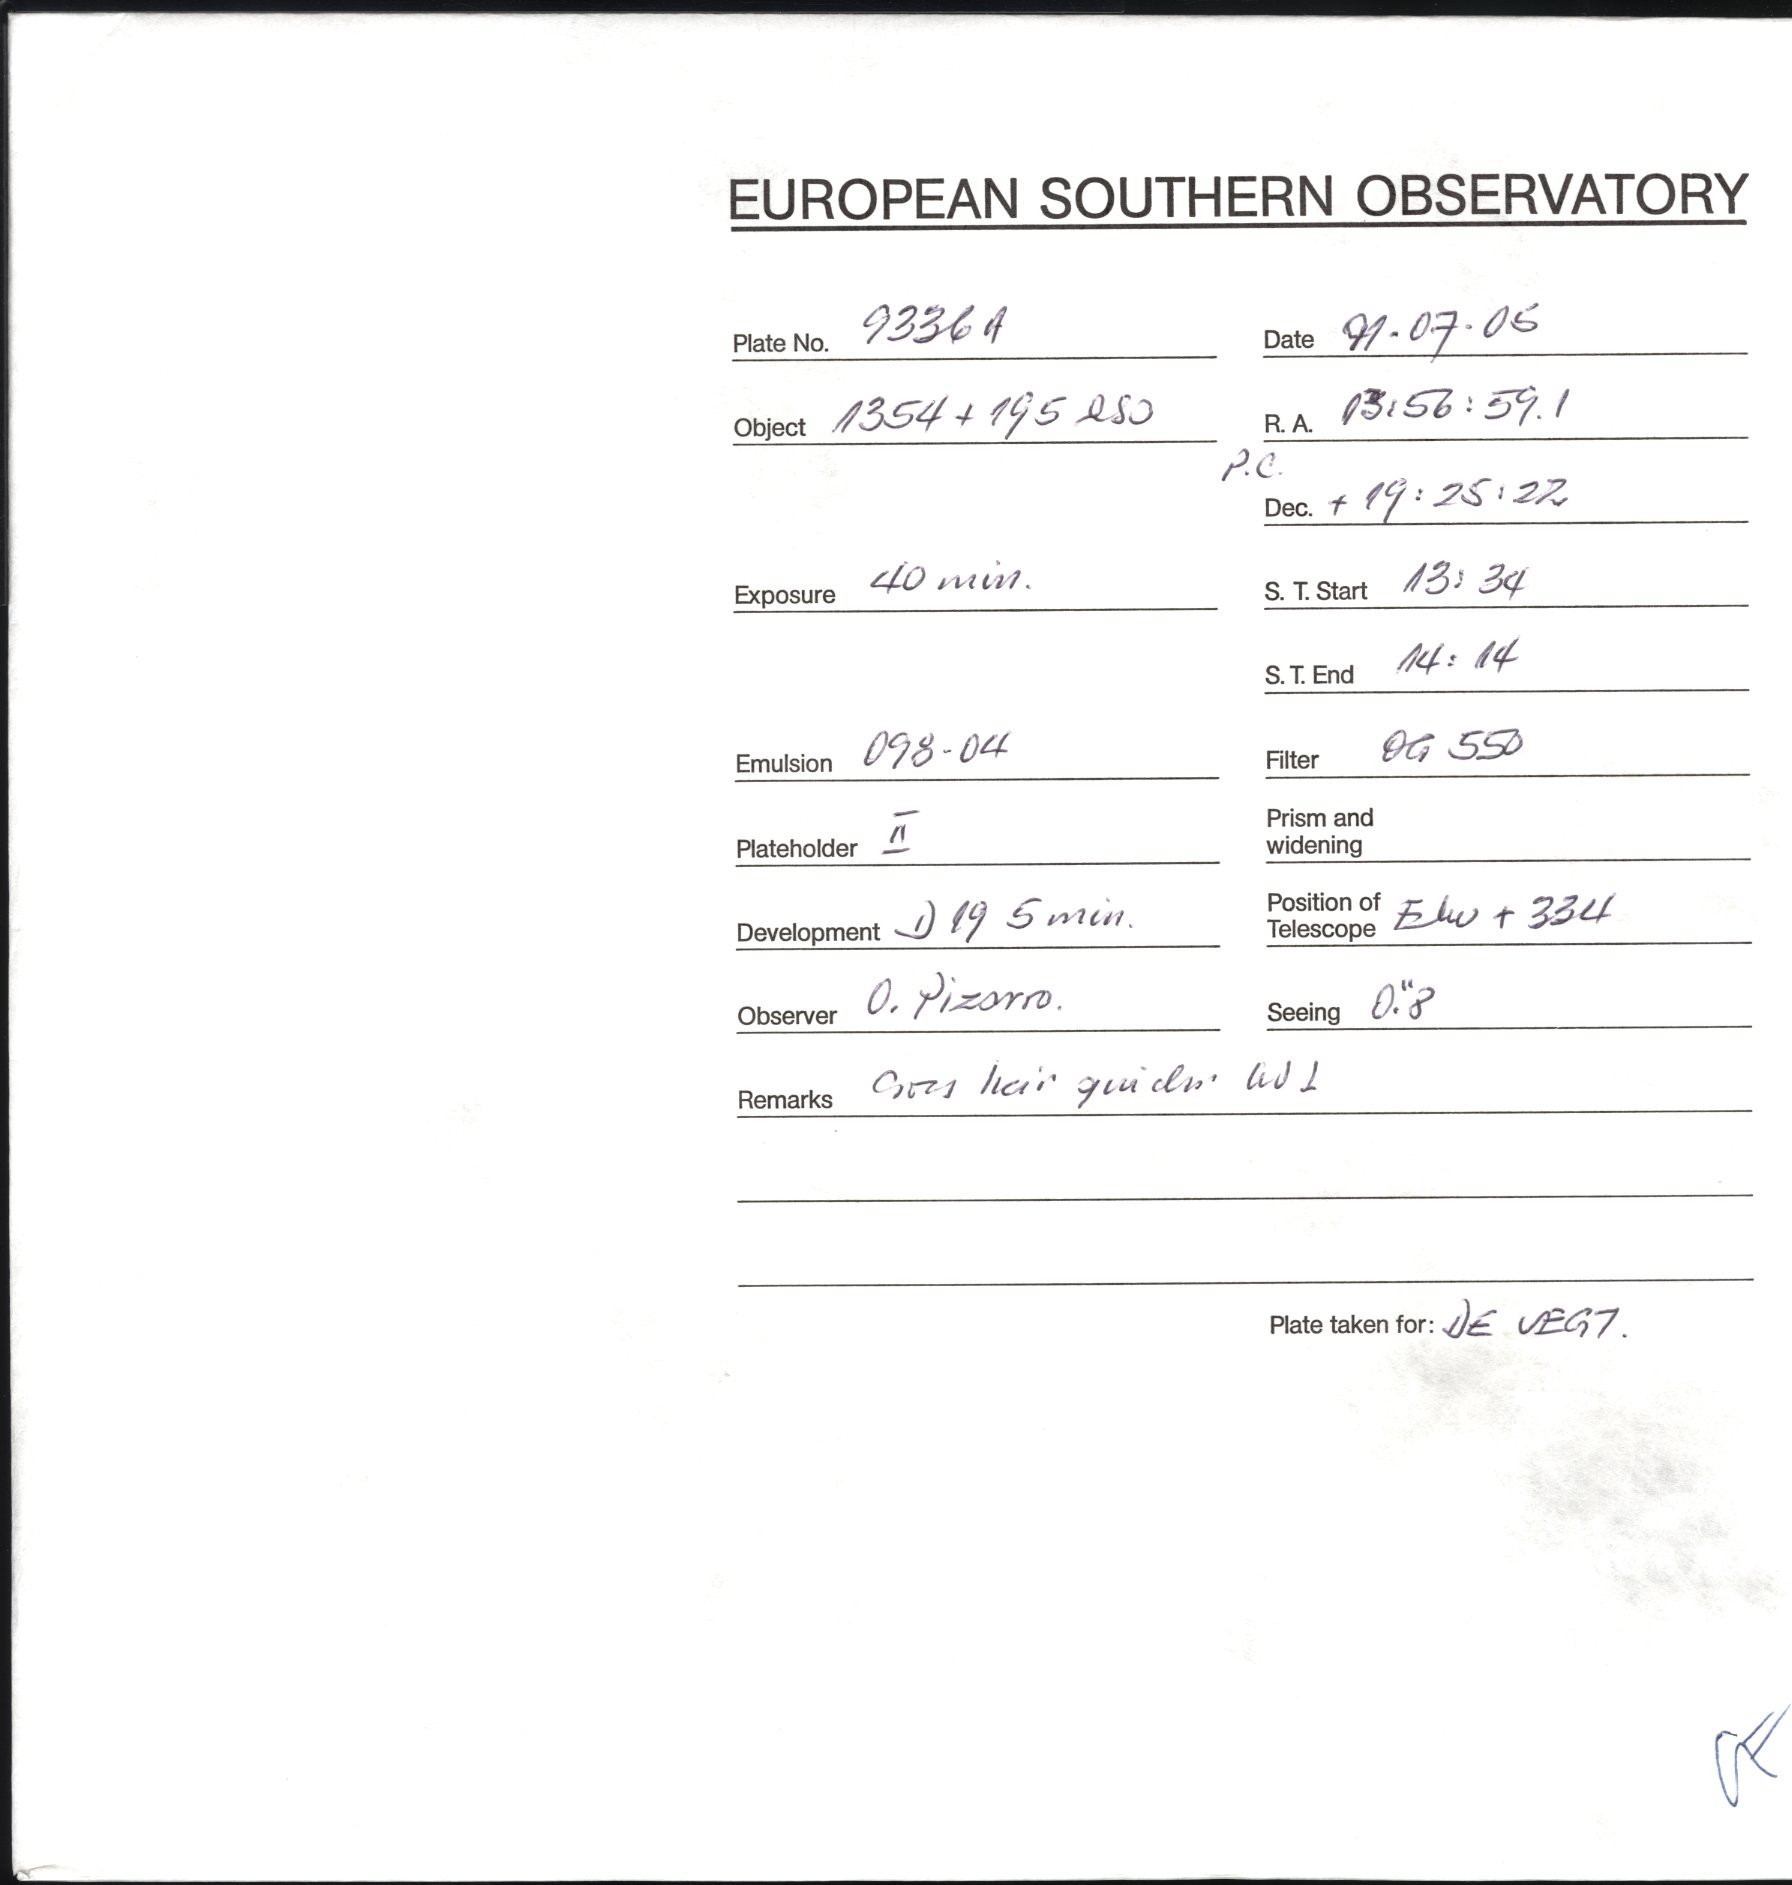 EUROPEAN SOUTHERN OBSERVATORY
Plate No. 9336 A Date 91-07-05
Object 1354+195 QSO R. A. 13:56:59.1
P.C.
Dec. + 19:25:22
Exposure 40 min. S. T. Start 13:34
S. T. End 14:14
Emulsion 098-04 Filter OG 550
Plateholder II Prism and
widening
Development D19 5 min. Position of
Telescope + 334
Observer O. Pizarro. Seeing 0."8
Remarks hair
Plate taken for: DE VEGT.
OK